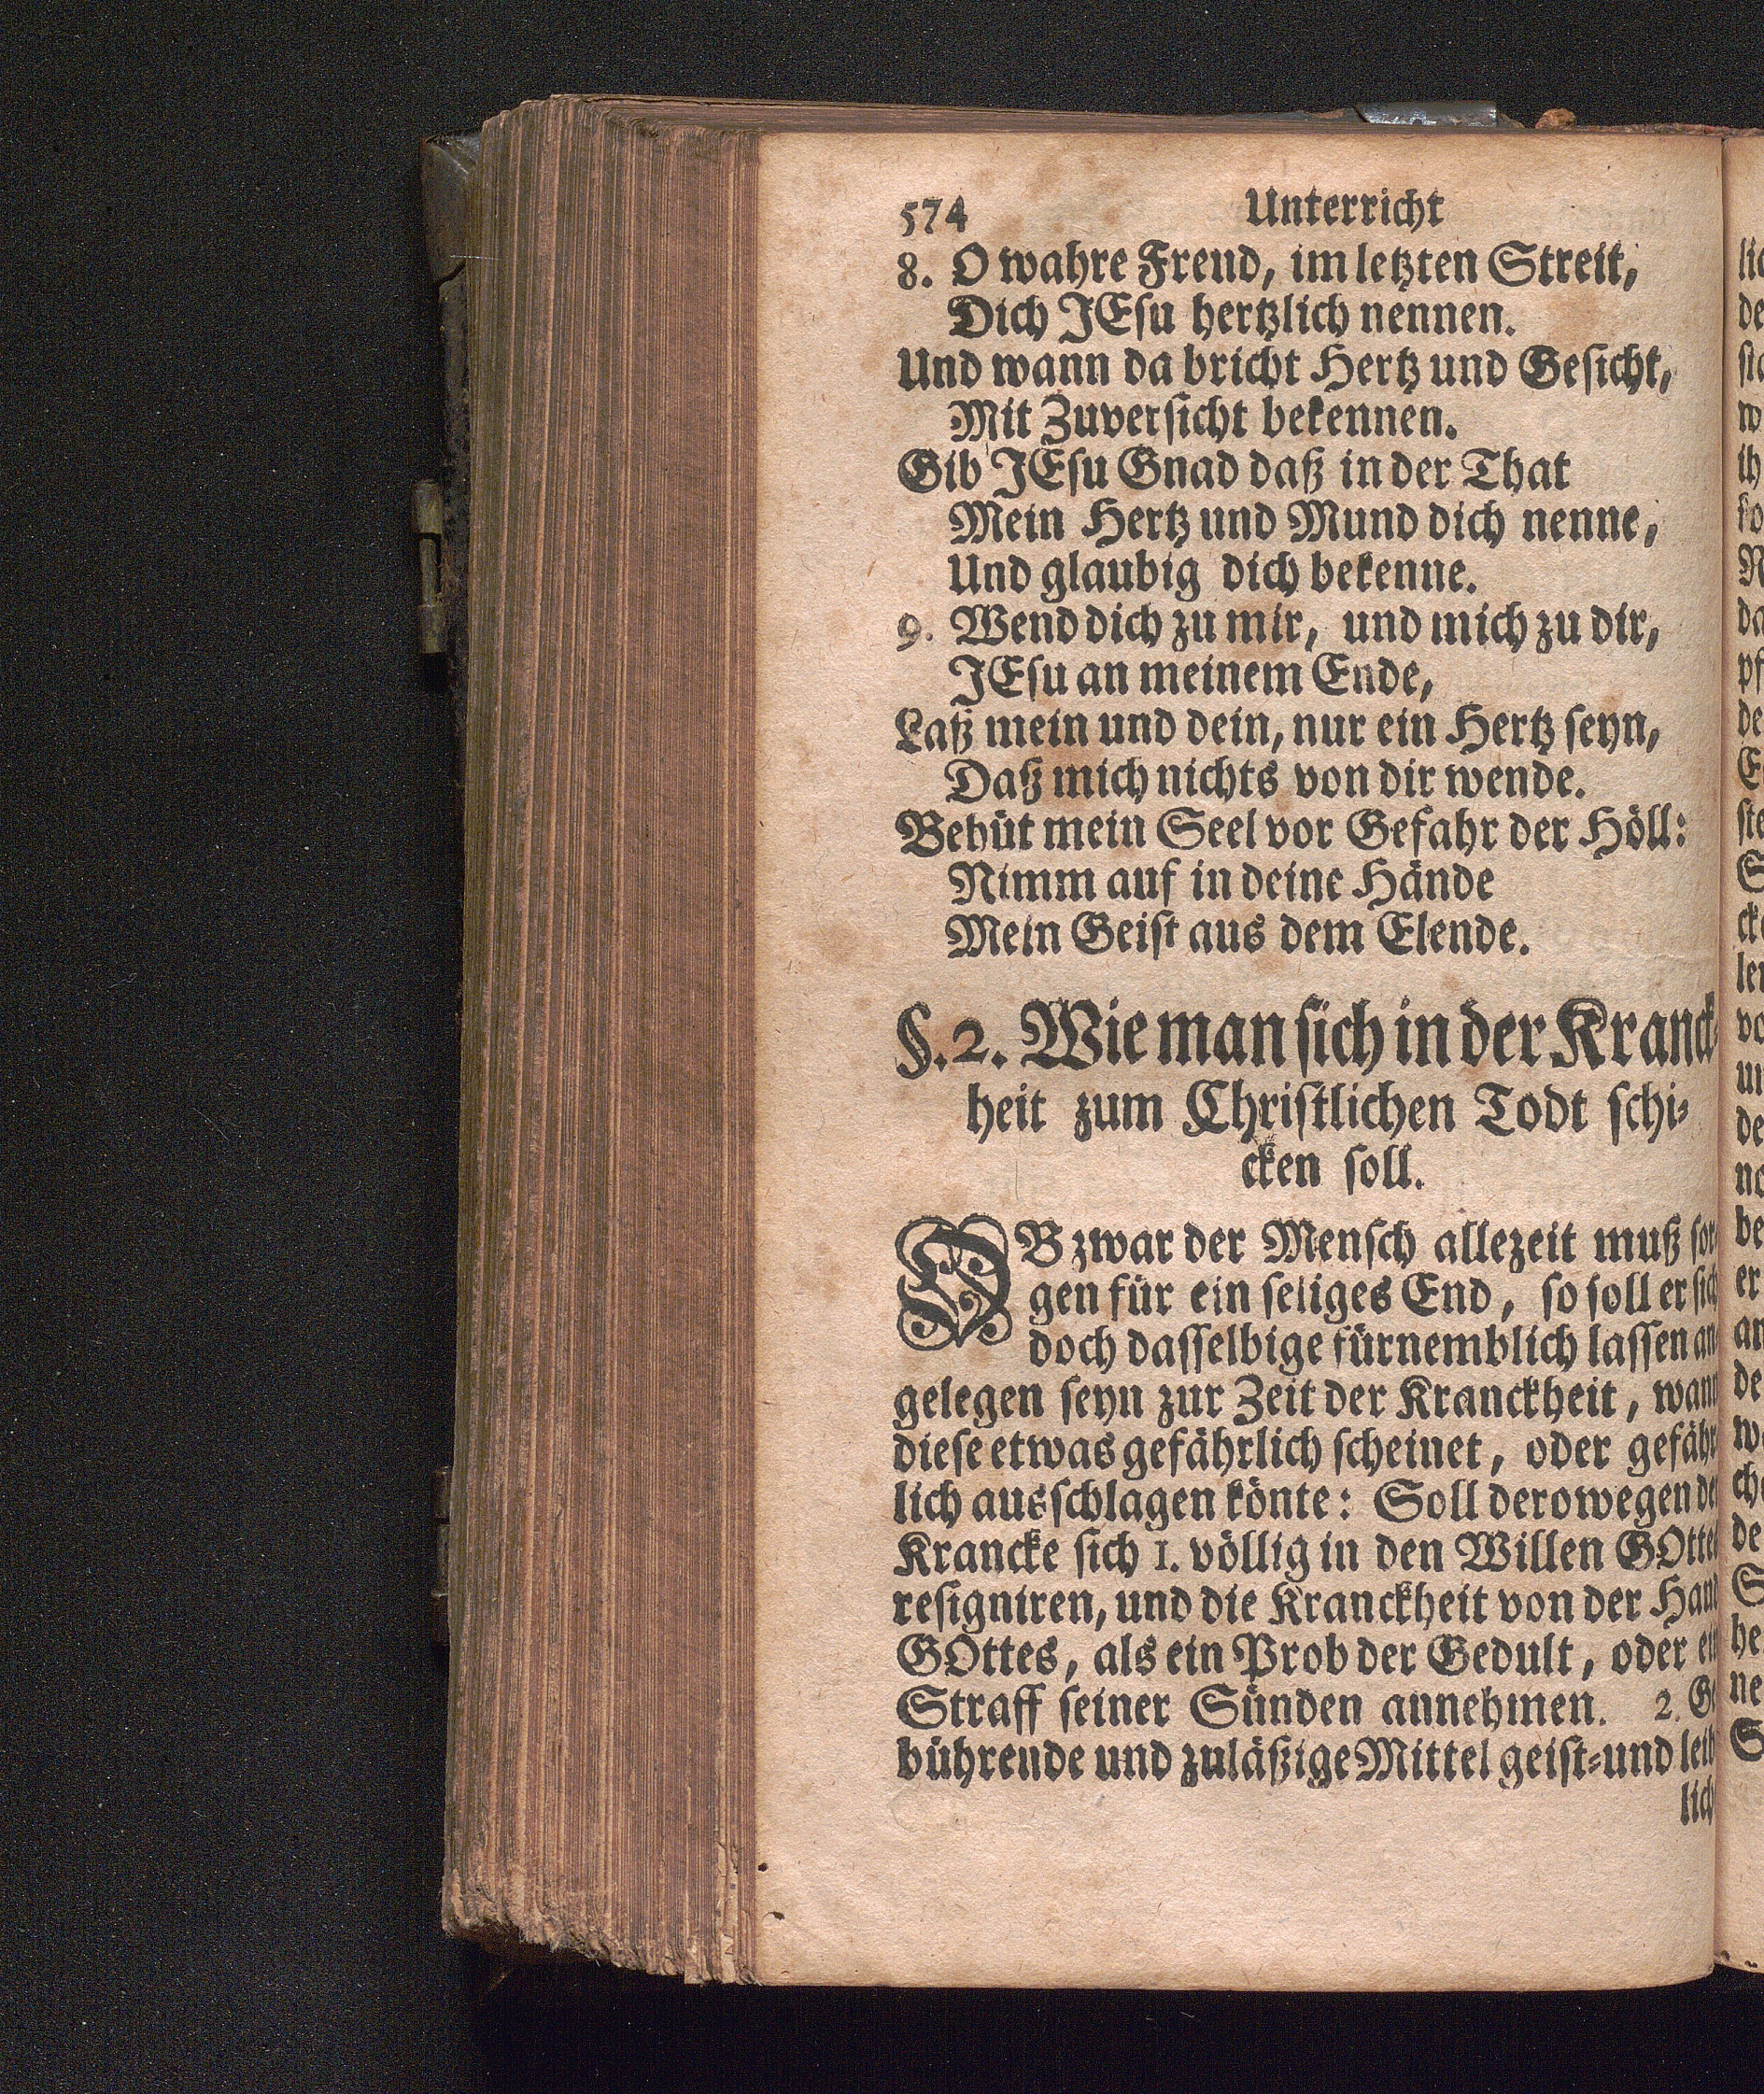 574 Unterricht
8. O wahre Freud, im letzten Streit,
Dich JEsu hertzlich nennen.
Und wann da bricht Hertz und Gesicht,
Mit Zuversicht bekennen.
Gib JEsu Gnad daß in der That
Mein Hertz und Mund dich nenne,
Und glaubig dich bekenne.
9. Wend dich zu mir, und mich zu dir,
JEsu an meinem Ende,
Laß mein und dein, nur ein Hertz seyn,
Daß mich nichts von dir wende.
Behüt mein Seel vor Gefahr der Höll:
Nimm auf in deine Hände
Mein Geist aus dem Elende.
§. 2. Wie man sich in der Kranck-
heit zum Christlichen Todt schi-
cken soll.
OB zwar der Mensch allezeit muß sor
gen für ein seliges End, so soll er sich
doch dasselbige fürnemblich lassen an
gelegen seyn zur Zeit der Kranckheit, wann
diese etwas gefährlich scheinet, oder gefähr
lich ausschlagen könte: Soll derowegen der
Krancke sich 1. völlig in den Willen GOttes
resigniren, und die Kranckheit von der Hand
GOttes, als ein Prob der Gedult, oder ein
Straff seiner Sünden annehmen. 2. Ge
bührende und zuläßige Mittel geist-und leib
lich